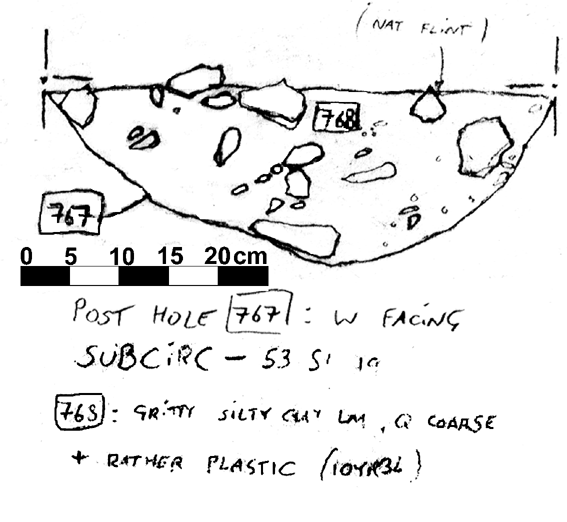 (NAT FLINT)
768
767
0 5 10 15 20cm
POST HOLE 767 : W FACING
SUBCIRC - 53
768 : GRITTY SILTY CLAY LM, Q COARSE
+ RATHER PLASTIC (10YR34)